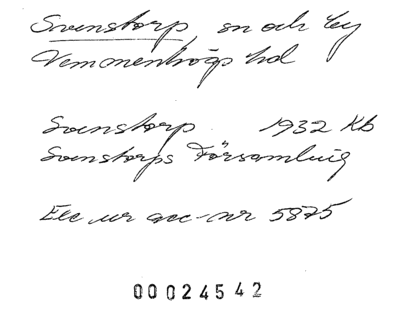 Svenstorp sn och by
Vemmenhögs hd
Svenstorp 1932 Kb
Svenstorps Församling
Exc ur acc-nr 5875
00024542